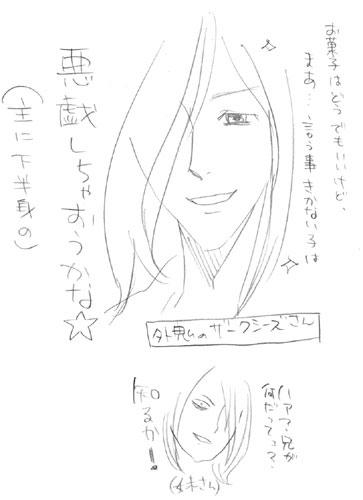 お菓子はどうでもいいけど、
まあ…言う事きかない子は
悪戯しちゃおうかな☆
(主に下半身の)
外見のザークシーズさん
ハァ?兄が
何だってっ?
知るかー!
(妹さん)